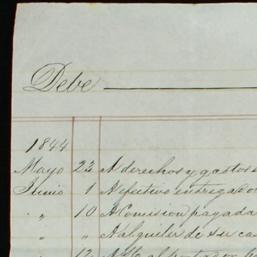 Debe
1844
Mayo 23 A derechos y gastos
Junio 1 A efectivo entregado
" 10 A Comision pagada
" " A alquiler de su ca
" 12